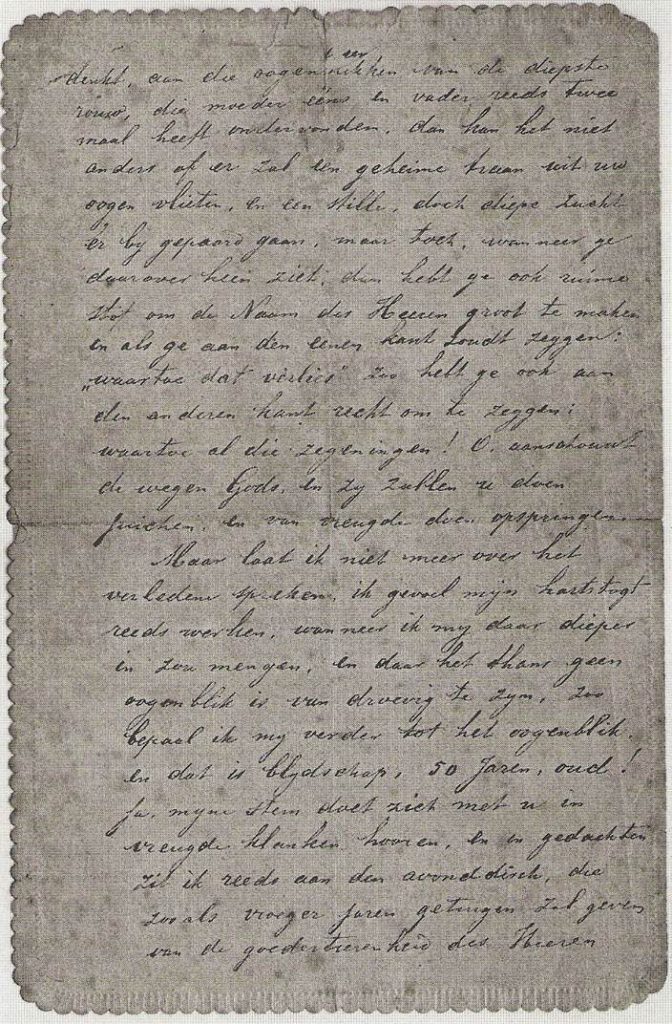 denkt, aan die oogenblikken van de diepste
rouw, die moeder ééns en vader reeds twee
maal heeft ondervonden, dan kan het niet
anders of er zal een geheime traan uit uw
oogen vlieten, en een stille, doch diepe zucht
er by gepaard gaan, maar toch, wanneer ge
daarover heen ziet, dan hebt ge ook ruime
stof om de Naam des Heeren groot te maken
en als ge aan den eenen kant zoudt zeggen:
„waartoe dat verlies" zoo hebt ge ook aan
den anderen kant recht om te zeggen:
waartoe al die zegeningen! O. aanschouwt
de wegen Gods, en zy zullen u doen
juichen, en van vreugde doen opspringen
Maar laat ik niet meer over het
verledene spreken, ik gevoel mijn hartstogt
reeds werken, wanneer ik my daar dieper
in zou mengen, en daar het thans geen
oogenblik is van droevig te zyn, zoo
bepaal ik my verder tot het oogenblik,
en dat is blydschap, 50 Jaren, oud!
Ja, myne stem doet zich met u in
vreugde klanken hooren, en in gedachten
zit ik reeds aan den avonddisch, die
zooals vroeger jaren getuigen zal geven
van de goedertierenheid des Heeren